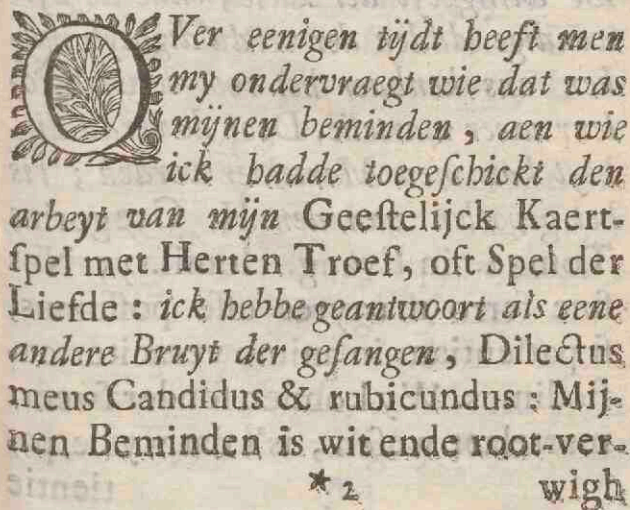 OVer eenigen tijdt heeft men
my ondervraegt wie dat was
mijnen beminden, aen wie
ick hadde toegeſchickt den
arbeyt van mijn Geeſtelijck Kaert-
ſpel met Herten Troef, oft Spel der
Liefde : ick hebbe geantwoort als eene
andere Bruyt der geſangen, Dilectus
meus Candidus & rubicundus : Mij-
nen Beminden is wit ende root-ver-
* 2 wigh